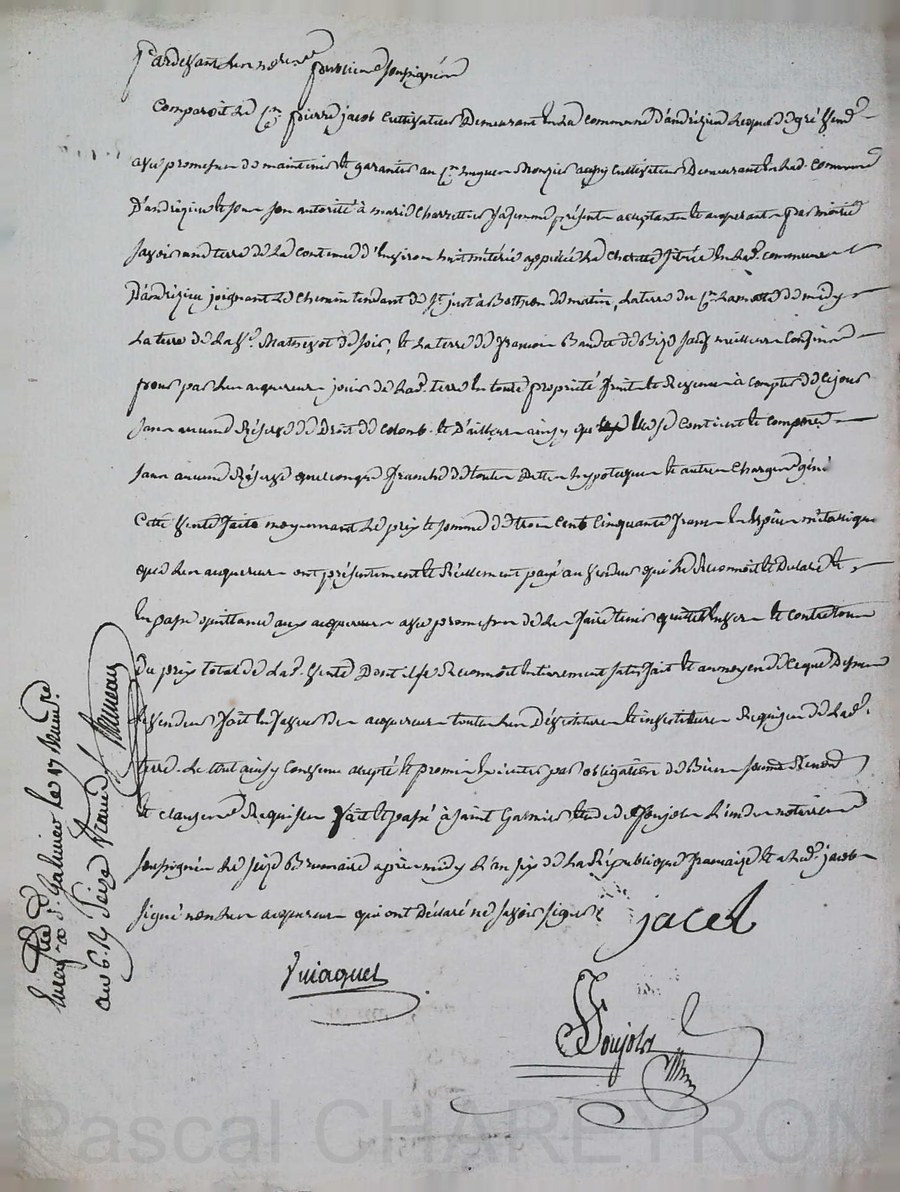 Pardevant les notaires publics soussignés
Comparoit le Cen pierre jacob cultivateur demeurant en la commune d'andrézieu lequel de gré vend
avec promesse de maintenir et garantir au Cen
aussy cultivateur demeurant en lad. commune
D'andrézieu et sous son autorité à marie Charretier sa femme présente acceptante et acquerante par moitié
savoir une terre de la contenue d'environ huit métérée appellée la située en lad. commune
D'andrézieu joignant le chemin tendant de St just à Bothéon de matin, la terre du Cen de midy
la terre de la Ve. de soir, et la terre de françois de Bize sauf meilleurs confins
pour par les acquereurs jouir de lad. terre en toute propriété fruits et revenus à compter de ce jour
sans aucune réserve de droit de et d'ailleurs ainsy qu'elle se contient et comporte
sans aucune réserve quelconque franche de toutes dettes hypoteques et autres charges
Cette vente faite moyennant le prix et somme de trois cent cinquante francs en espèces métalique
que les acquereurs ont présentement et réellement payé au vendeur qui le reconnoit et déclare et
en passe quittance aux acquereurs avec promesse de les faire tenir quittes envers et contre tous
Du prix total de lad. vente dont il se reconnoit entierement satisfait et au moyen de ce que dessus
le vendeur fait en faveur des acquereurs toutes les dévestiture et investiture requises de lad.
terre. le tout ainsy convenu accepté et promis exécuter par obligation de biens
et clauses requises fait et passé à Saint Galmier étude de Poujolx l'un des notaires
soussignés le seize Brumaire après midy l'an six de la République française et a led. jacob
signé non les acquereurs qui ont déclaré ne savoir signer
jacob
Poujolx
Enregtré à St. Galmier le 17 Brumre
an 6. Seize francs
Pascal CHAREYRON